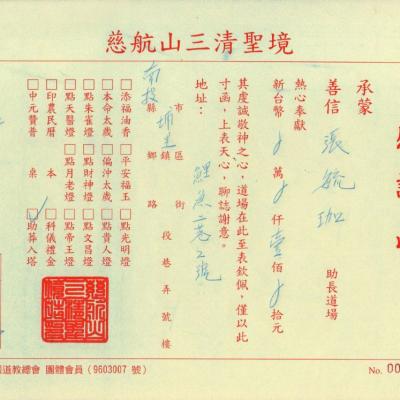 慈航山三清聖境
承蒙
善信 張毓珈 助長道場
熱心奉獻
新台幣 萬 仟壹佰 拾元
其虔誠敬神之心，道場在此至表欽佩，僅以此
寸函，上表天心，聊誌謝意。
地址：
南投 縣市 埔里 鄉鎮區 路街 段 巷 弄 號 樓
鯉魚二巷2號
□添福油香 □平安福玉 □點光明燈
□本命太歲 □偏沖太歲 □點貴人燈
□點朱雀燈 □點財神燈 □點文昌燈
□點天醫燈 □點月老燈 □點帝王燈
□印農民曆 本 □科儀禮金
□中元贊普 桌 □助葬入塔
道教總會 團體會員 (9603007 號)
No. 00